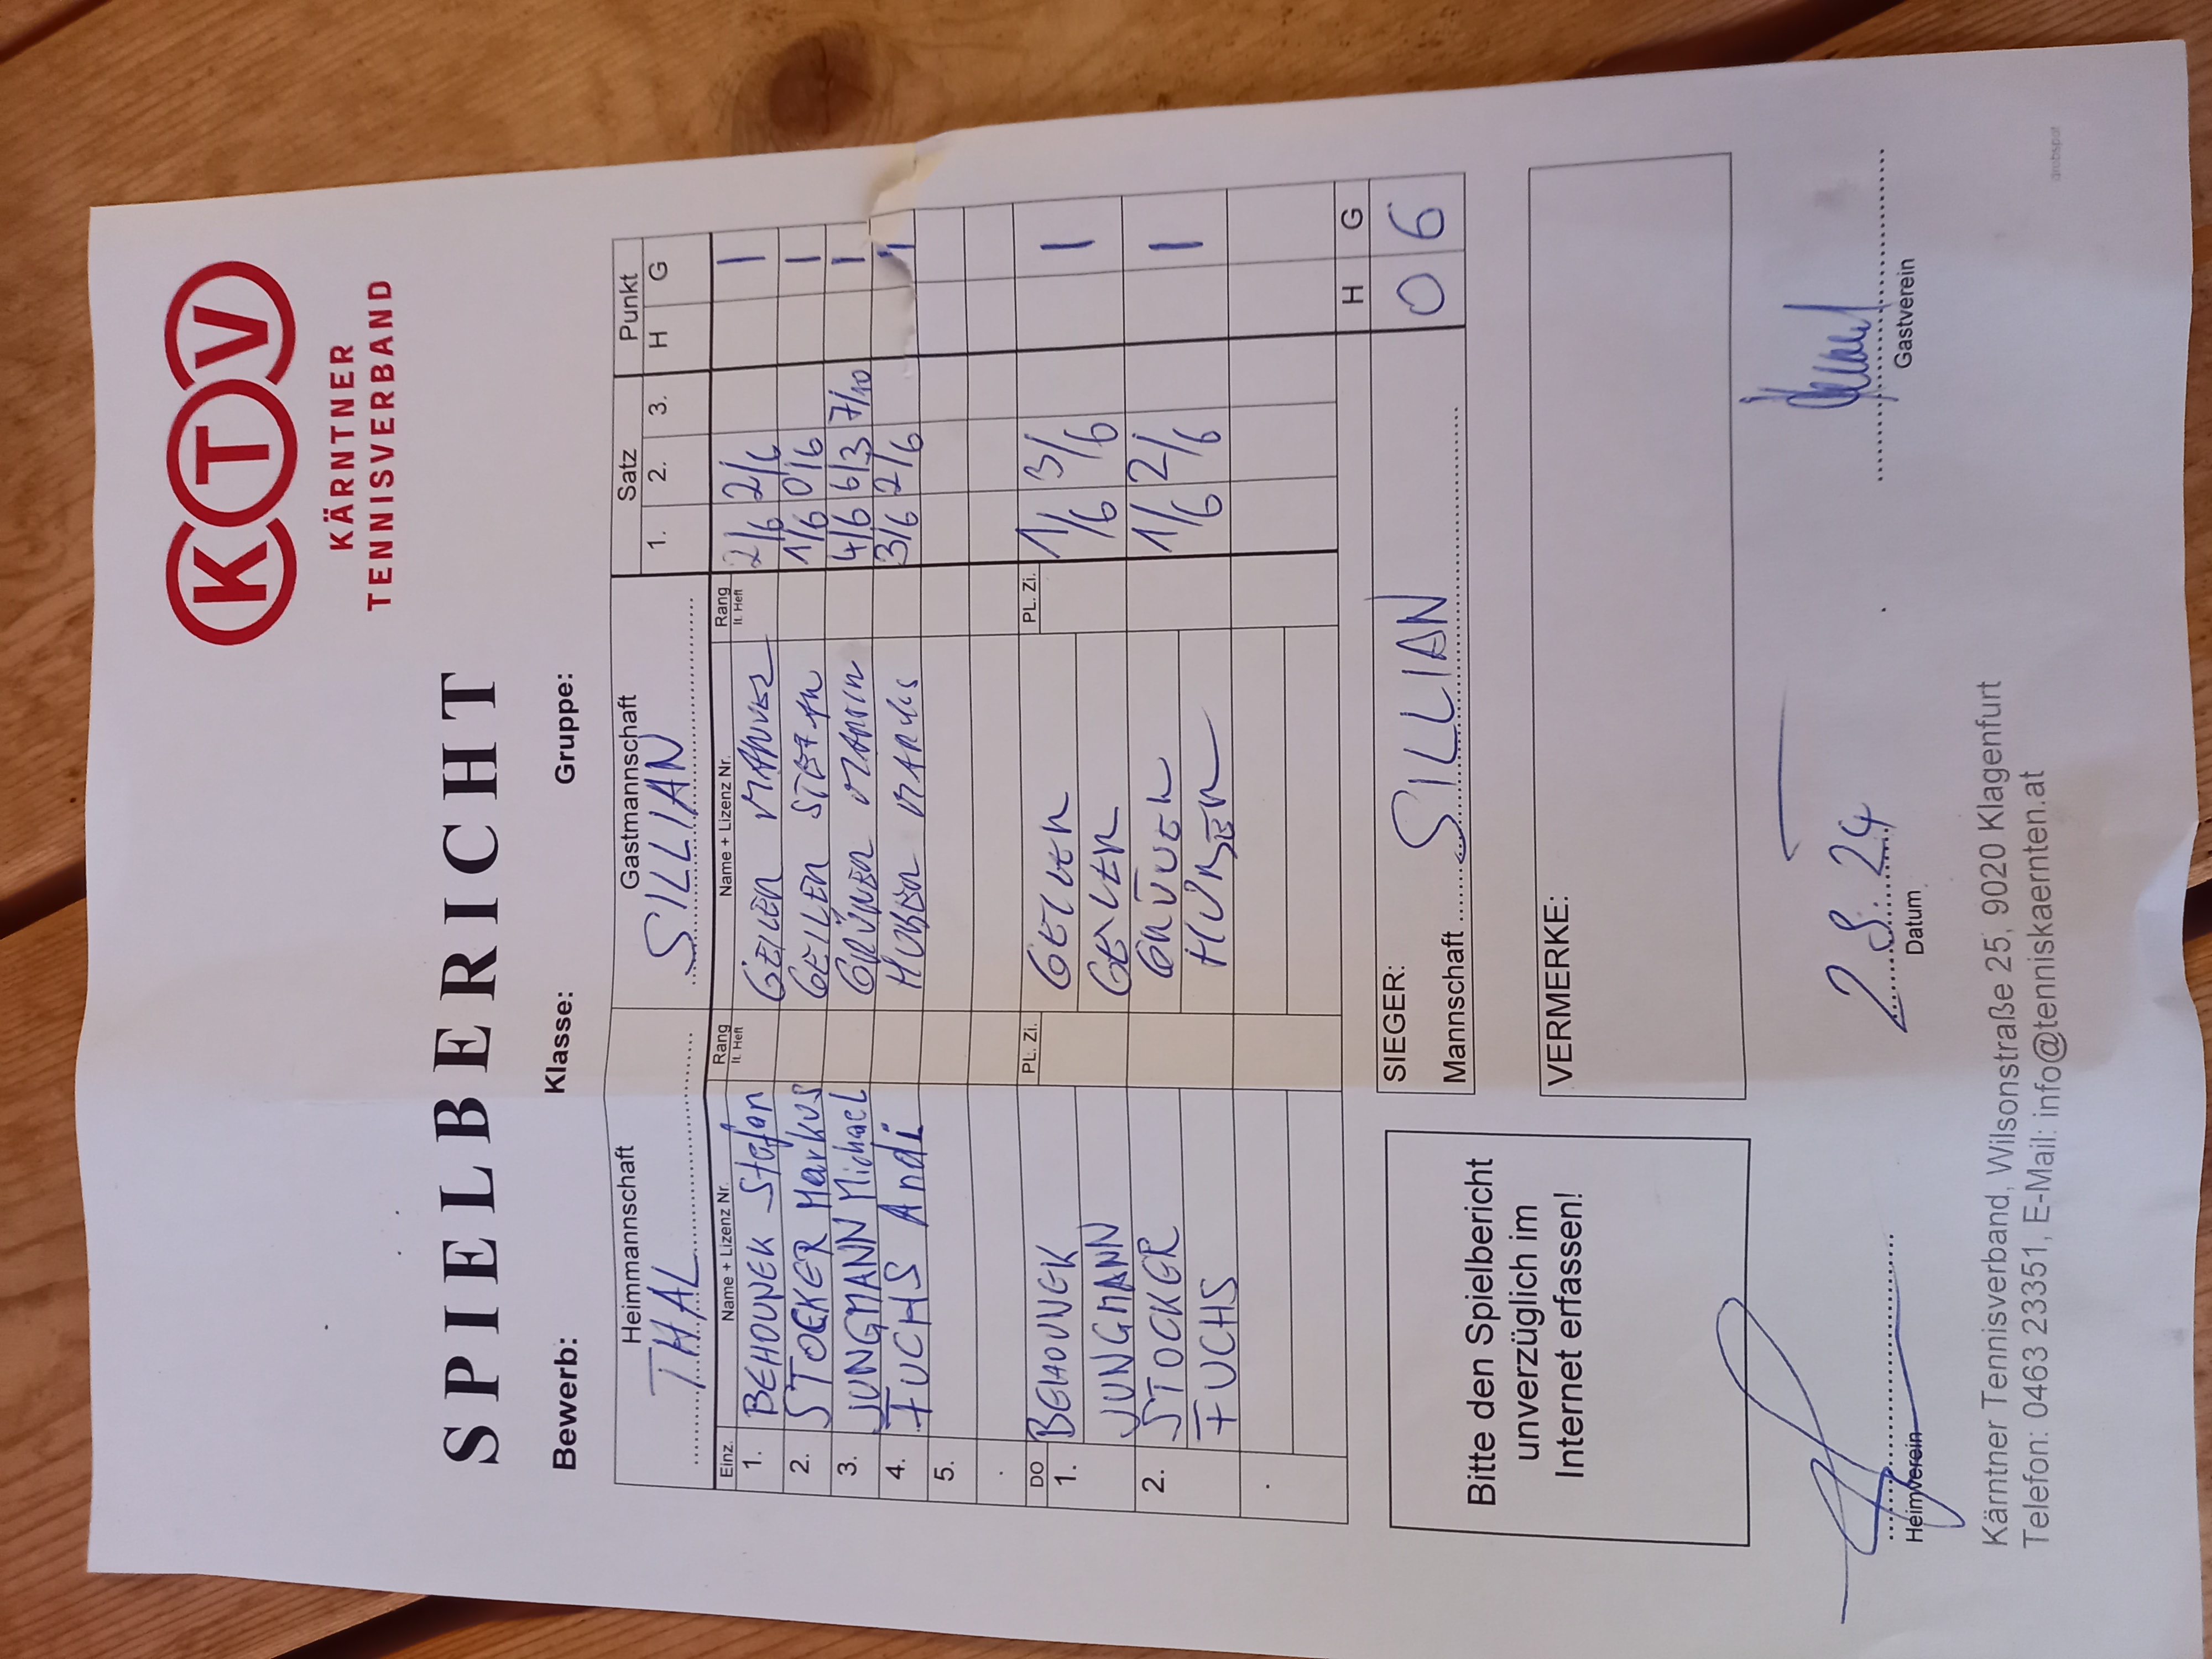 KTV
KÄRNTNER
TENNISVERBAND
SPIELBERICHT
Bewerb: Klasse: Gruppe:
Heimmannschaft Gastmannschaft Satz Punkt
THAL SILLIAN 1. 2. 3. H G
Einz. Name + Lizenz Nr. Rang lt. Heft Name + Lizenz Nr. Rang lt. Heft
1. BEHOUNEK Stefan GEILER MANUEL 2/6 2/6 1
2. STOCKER Markus GEILER STEFAN 1/6 0/6 1
3. JUNGMANN Michael GRÜNER MARTIN 4/6 6/3 7/10 1
4. FUCHS Andi HUBER MARKUS 3/6 2/6 1
5.
DO PL. Zi. PL. Zi.
1. BEHOUNEK GEILER 1/6 3/6 1
JUNGMANN GEILER
2. STOCKER GRÜNER 1/6 2/6 1
FUCHS HUBER
H G
SIEGER: 0 6
Mannschaft SILLIAN
Bitte den Spielbericht
unverzüglich im
Internet erfassen!
VERMERKE:
2.8.24
Heimverein Datum Gastverein
Kärntner Tennisverband, Wilsonstraße 25, 9020 Klagenfurt
Telefon: 0463 23351, E-Mail: info@tenniskaernten.at